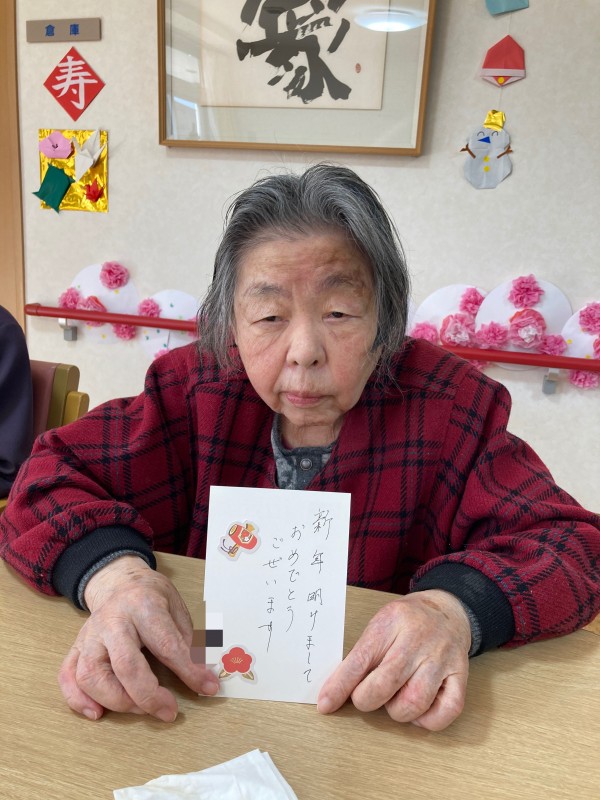 倉庫
寿
新年明けまして
おめでとう
ございます